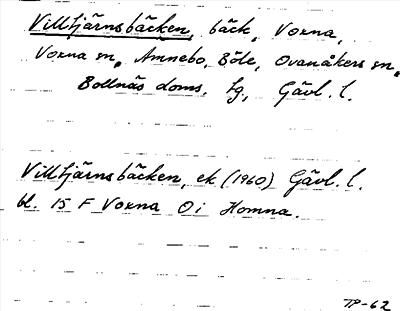 Villtjärnsbäcken, bäck, Voxna,
Voxna sn, Amnebo, Böle, Ovanåkers sn,
Bollnäs doms. tg, Gävl. l.
Villtjärnsbäcken, ek (1960) Gävl. l.
bl. 15 F Voxna 0 i Homna.
TP-62